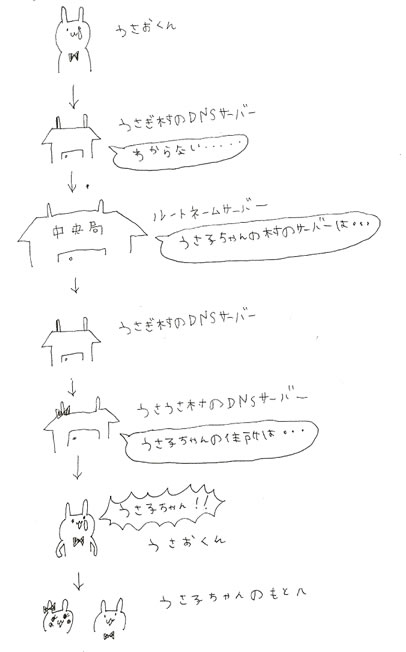 うさおくん
うさぎ村のDNSサーバー
わからない・・・・・
ルートネームサーバー
中央局
うさ子ちゃんの村のサーバーは・・・
うさぎ村のDNSサーバー
うさうさ村のDNSサーバー
うさ子ちゃんの住所は・・・
うさ子ちゃん!!
うさおくん
うさ子ちゃんのもとへ